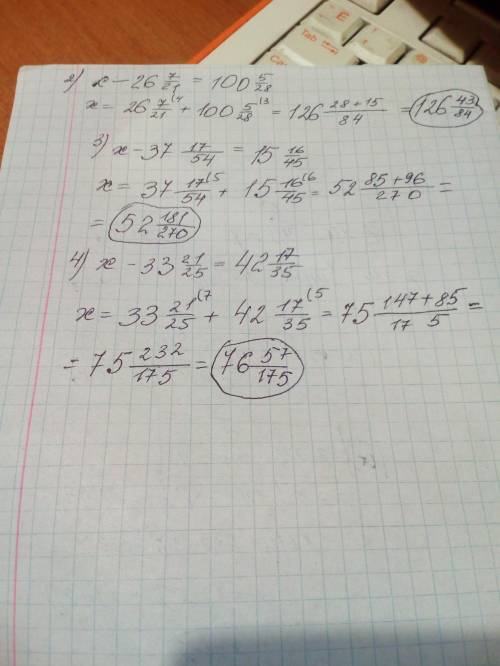 2) x - 26 7/21 = 100 5/28
x = 26 7/21 (4 + 100 5/28 (3 = 126 28+15/84 = 126 43/84
3) x - 37 17/54 = 15 16/45
x = 37 17/54 (5 + 15 16/45 (6 = 52 85+96/270 =
= 52 181/270
4) x - 33 21/25 = 42 17/35
x = 33 21/25 (7 + 42 17/35 (5 = 75 147+85/17 5 =
= 75 232/175 = 76 57/175